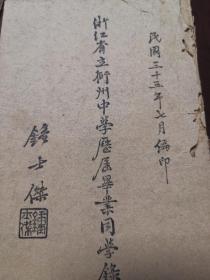 民國三十三年七月編印
浙江省立衢州中學歷屆畢業同學錄
士傑